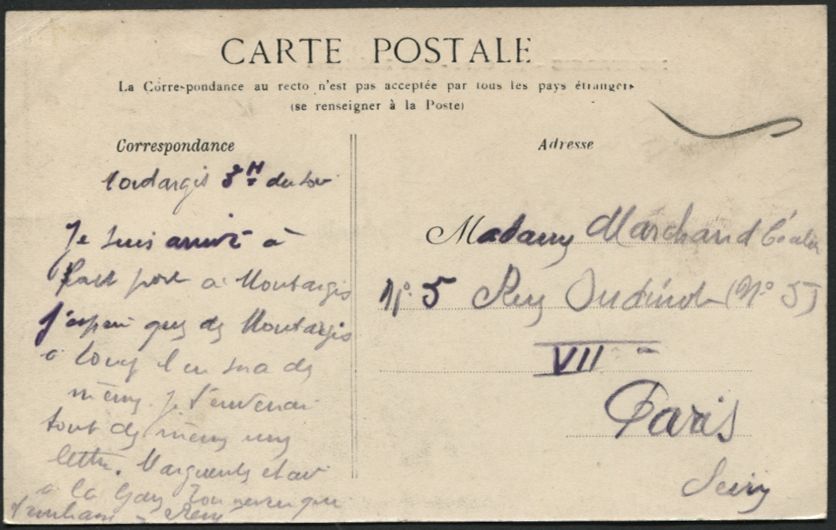 CARTE POSTALE
La Correspondance au recto n'est pas acceptée par tous les pays étrangers
(se renseigner à la Poste)
Correspondance
Adresse
Montargis 8H du soir
Je suis arrivé à
bon port à Montargis
J'espère que de Montargis
à il en sera de
même je t'enverrai
tout de même une
lettre. Marguerite était
à la gare
Madame Marchand
N° 5 Rue Oudinot (N° 5)
VII
Paris
Seine